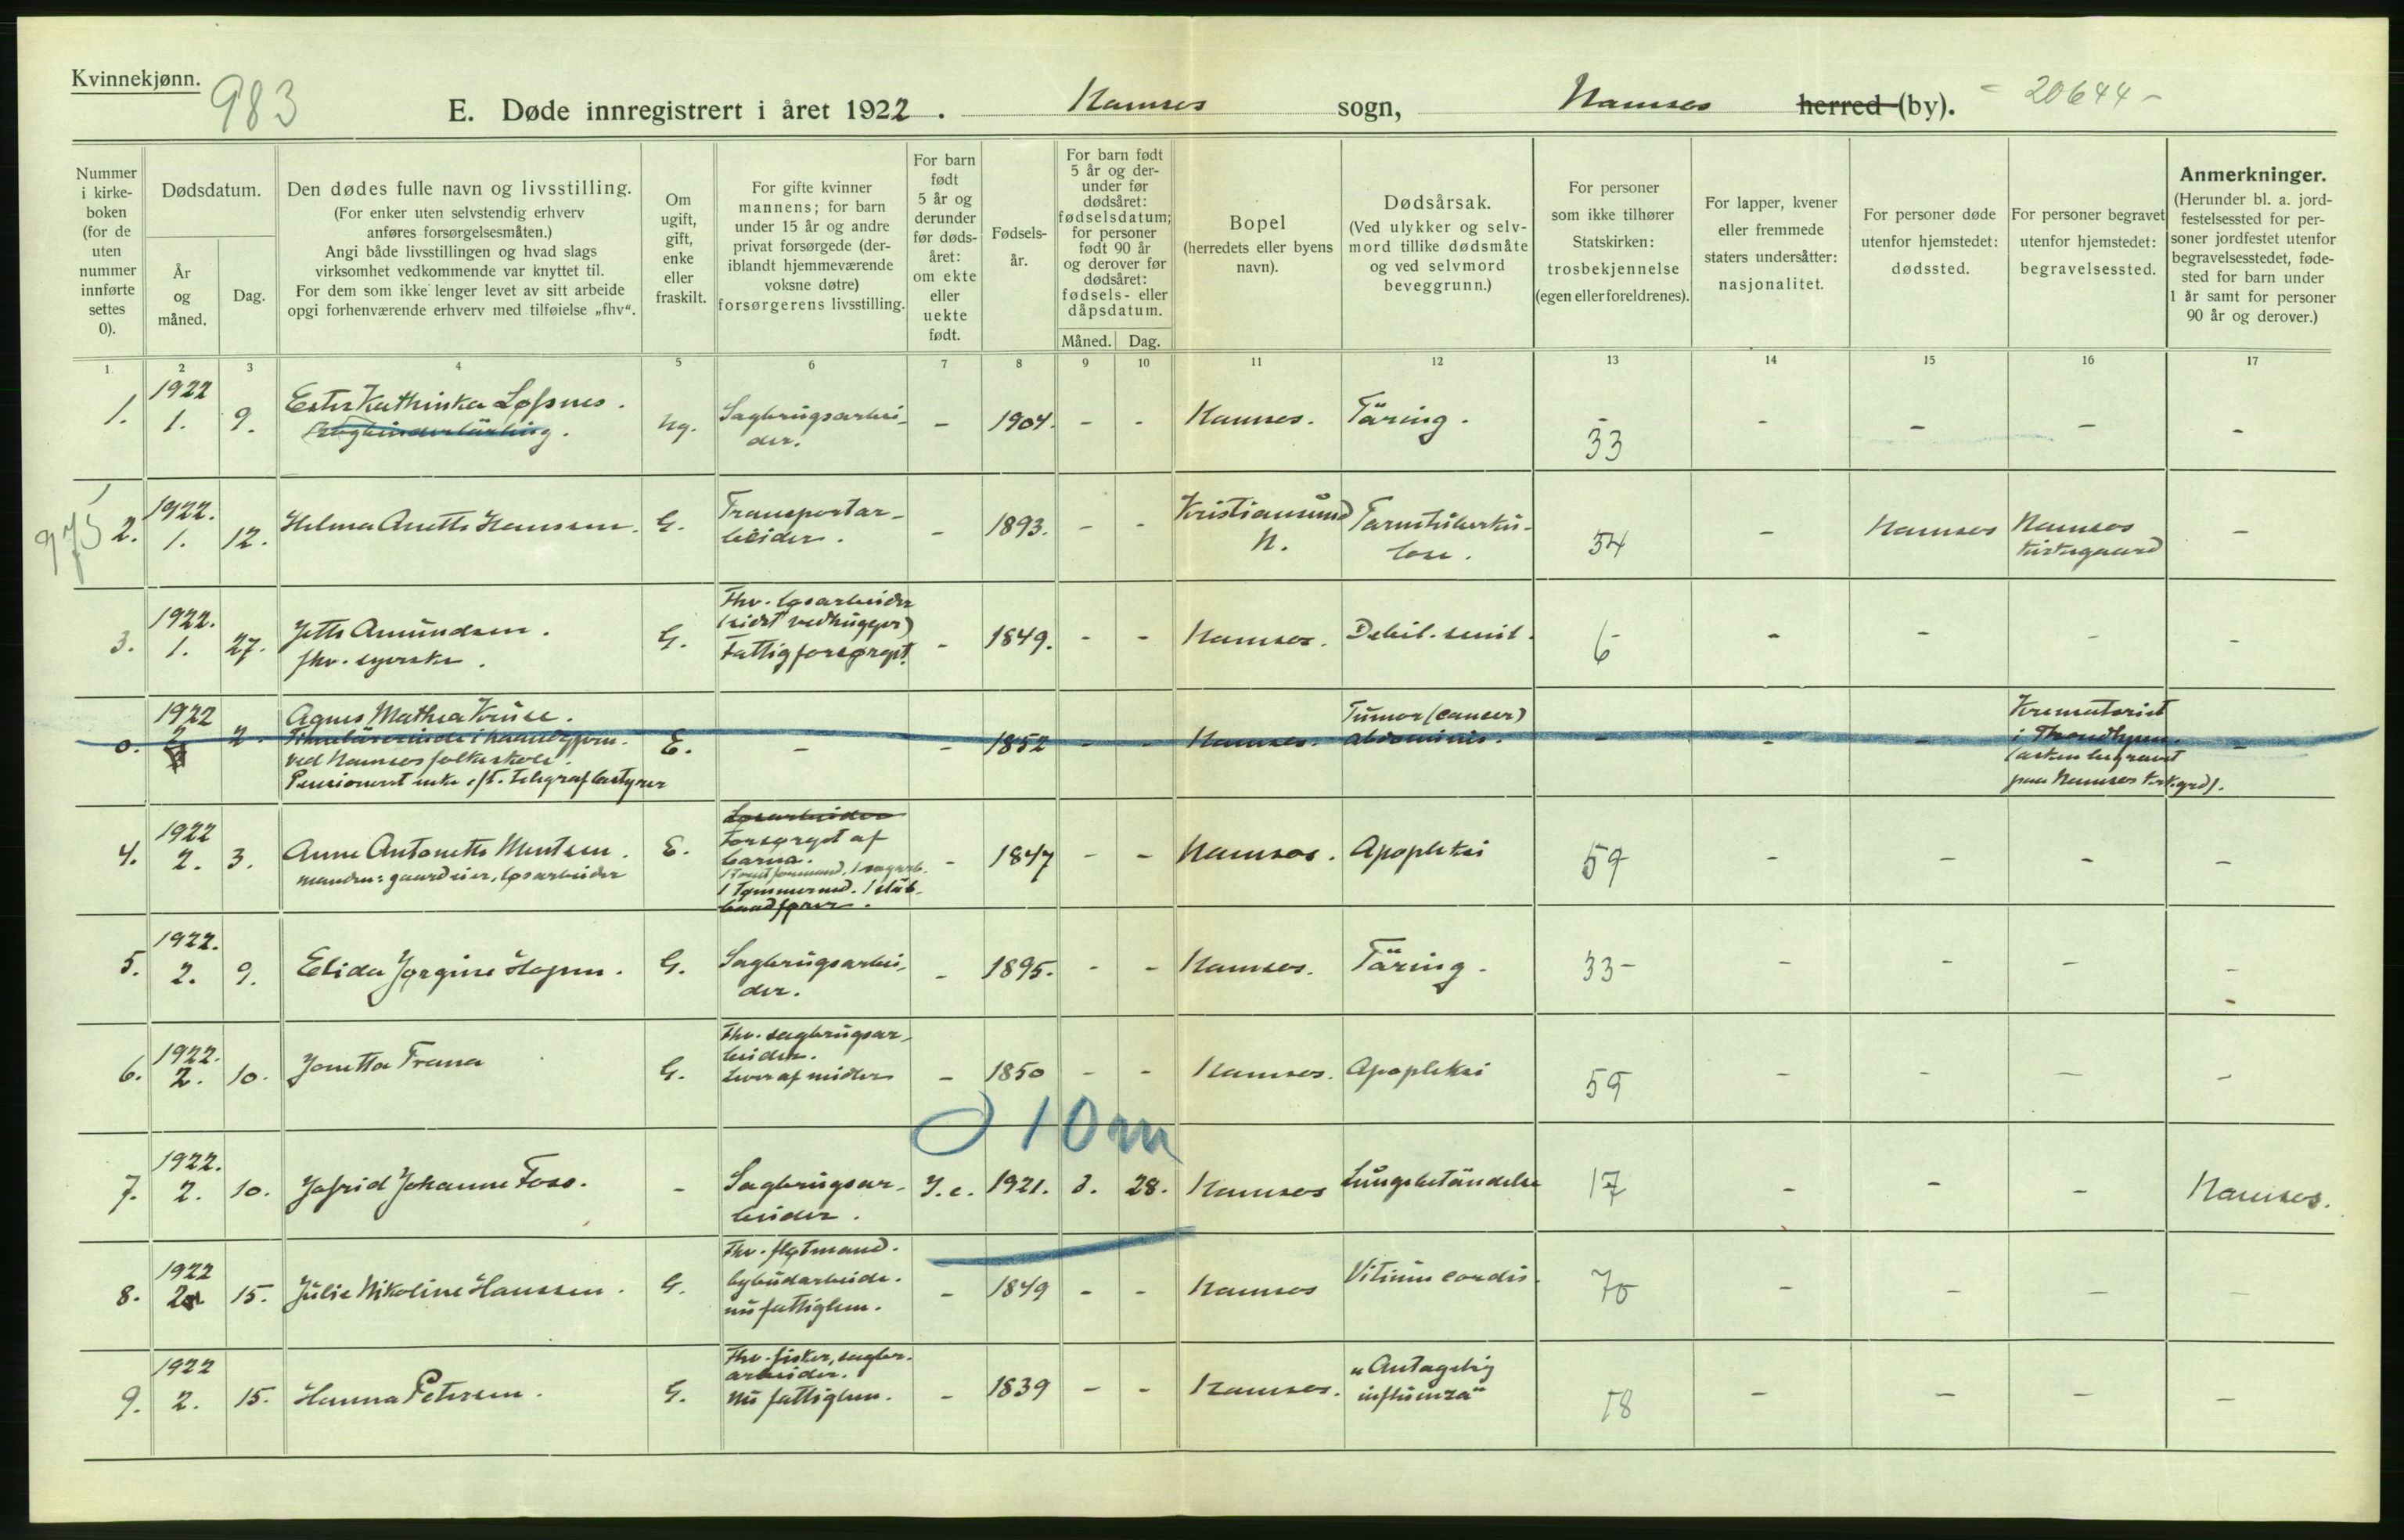 Kvinnekjønn.
983
E. Døde innregistrert i året 1922. Namsos sogn, Namsos herred (by). - 20644 -
Nummer i kirkeboken (for de uten nummer innførte settes 0).
Dødsdatum.
År og måned.
Dag.
Den dødes fulle navn og livsstilling.
(For enker uten selvstendig erhverv
anføres forsørgelsesmåten.)
Angi både livsstillingen og hvad slags
virksomhet vedkommende var knyttet til.
For dem som ikke lenger levet av sitt arbeide
opgi forhenværende erhverv med tilføielse „fhv“.
Om ugift, gift, enke eller fraskilt.
For gifte kvinner
mannens; for barn
under 15 år og andre
privat forsørgede (der-
iblandt hjemmeværende
voksne døtre)
forsørgerens livsstilling.
For barn født 5 år og derunder før dødsåret: om ekte eller uekte født.
Fødsels-
år.
For barn født
5 år og der-
under før
dødsåret:
fødselsdatum;
for personer
født 90 år
og derover før
dødsåret:
fødsels- eller
dåpsdatum.
Måned. Dag.
Bopel
(herredets eller byens
navn).
Dødsårsak.
(Ved ulykker og selv-
mord tillike dødsmåte
og ved selvmord
beveggrunn.)
For personer
som ikke tilhører
Statskirken:
trosbekjennelse
(egen eller foreldrenes).
For lapper, kvener
eller fremmede
staters undersåtter:
nasjonalitet.
For personer døde
utenfor hjemstedet:
dødssted.
For personer begravet
utenfor hjemstedet:
begravelsessted.
Anmerkninger.
(Herunder bl. a. jord-
festelsessted for per-
soner jordfestet utenfor
begravelsesstedet, føde-
sted for barn under
1 år samt for personer
90 år og derover.)
1 2 3 4 5 6 7 8 9 10 11 12 13 14 15 16 17
1. 1922 1. 9. Ester Kathinka Løfsnes. ug. Sagbrugsarbei-
der. - 1904. - - Namsos. Täring. - 33 - - - -
975
2. 1922. 1. 12. Helma Anette Hanssen. G. Transportar-
beider. - 1893. - - Kristiansund
N. Tarmtuberku-
lose. 54 - Namsos Namsos
kirkegaard -
3. 1922. 1. 27. Jette Amundsen.
fhv. syerske. G. Fhv. løsarbeider
(sidst vedhugger)
Fattigforsørget. - 1849. - - Namsos. Debil. senil. 6 - - - -
0. 1922 2. 2. Agnes Mathea Kruse.
Timelärerinde i haandgjern.
ved Namsos folkeskole.
Pensionert enke eft. telegrafbestyrer E. - - 1852 - - Namsos. Tumor (cancer)
abdominis. - - - Krematoriet
i Trondhjem.
(asken begravet
paa Namsos kirkgrd). -
4. 1922 2. 3. Anne Antonette Mentsen.
manden: gaardeier, løsarbeider E. Løsarbeider
Forsørget af
barna.
1 Tømmermd. 1 - 1847 - - Namsos. Apopleksi 59 - - - -
5. 1922. 2. 9. Elida Jørgine Hagen. G. Sagbrugsarbei-
der. - 1895. - - Namsos. Täring. 33 - - - - -
6. 1922. 2. 10. Jonetta Frana G. Fhv. sagbrugsar-
beider.
Lever af midler - 1850 - - Namsos. Apopleksi 59 - - - -
10 m
7. 1922. 2. 10. Jofrid Johanne Foss. - Sagbrugsar-
beider. I. e. 1921. 3. 28. Namsos Lungebetändelse 17 - - - Namsos.
8. 1922 2. 15. Julie Nikoline Hanssen. G. Fhv. fløtmand.
bybudarbeide.
nu fattiglem. - 1849 - - Namsos Vitium cordis. 70 - - - -
9. 1922 2. 15. Hanna Petersen. G. Fhv. fisker, sagbr.
arbeider.
Nu fattiglem. - 1839 - - Namsos. „Antagelig
influenza“ 18 - - - -